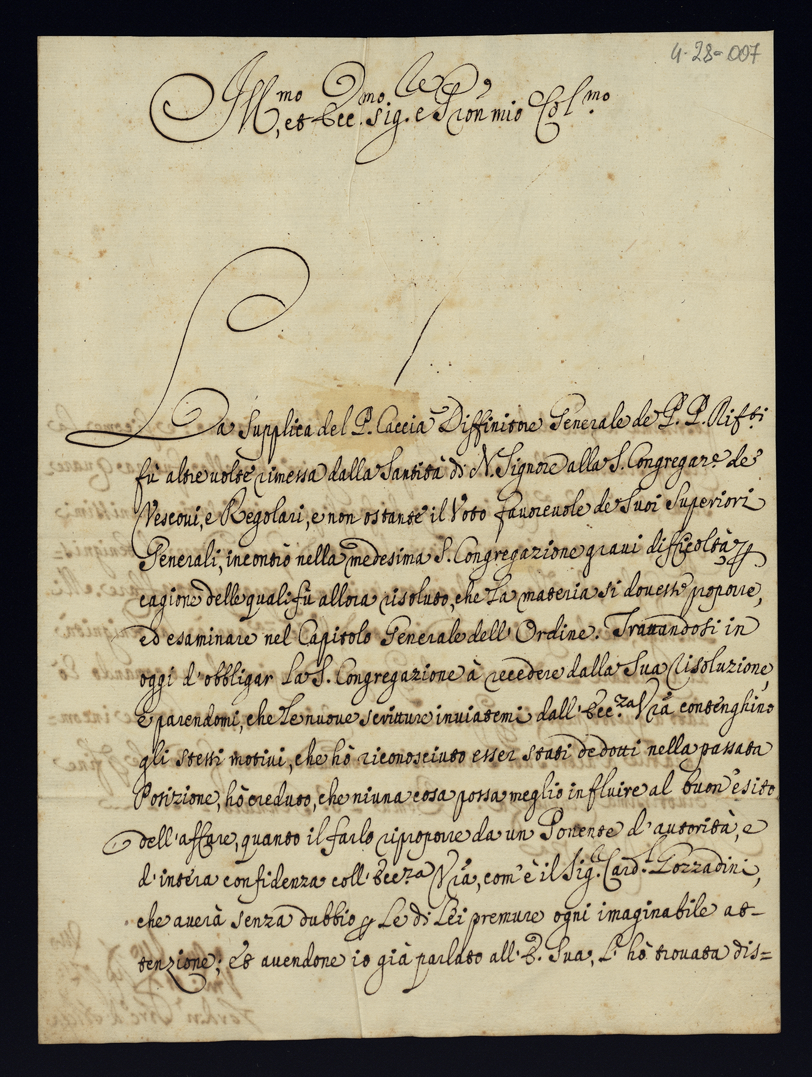 4-28-007
Ill.mo, et Ecc.mo Sig.re e P̃ron mio Col.mo
La Supplica del P. Caccia Diffinitore Generale de P.P. Rif.ti
fù altre uolte rimessa dalla Santità di N. Signore alla S. Congregaz.e de
Vescoui, e Regolari, e non ostante il Voto fauoreuole de Suoi Superiori
Generali, incontrò nella medesima S. Congregazione graui difficoltà, p
cagione delle quali fù allora risoluto, che La materia si douesse proporre,
ed esaminare nel Capitolo Generale dell'Ordine. Trattandosi in
oggi d'obbligar La S. Congregazione à recedere dalla Sua risoluzione,
e parendomi, che Le nuoue scritture inuiatemi dall'Ecc.za Vr̃a contenghino
gli stessi motiui, che hò riconosciuto esser stati dedotti nella passata
Posizione, hò creduto, che niuna cosa possa meglio influire al buon'esito
dell'affare, quanto il farlo riproporre da un Ponente d'autorità, e
d'intera confidenza coll'Ecc.za Vr̃a, com'è il Sig.r Card.l Gozzadini,
che auerà senza dubbio p Le di Lei premure ogni imaginabile at-
tenzione; et auendone io già parlato all'E. Sua, L'hò trouata dis=